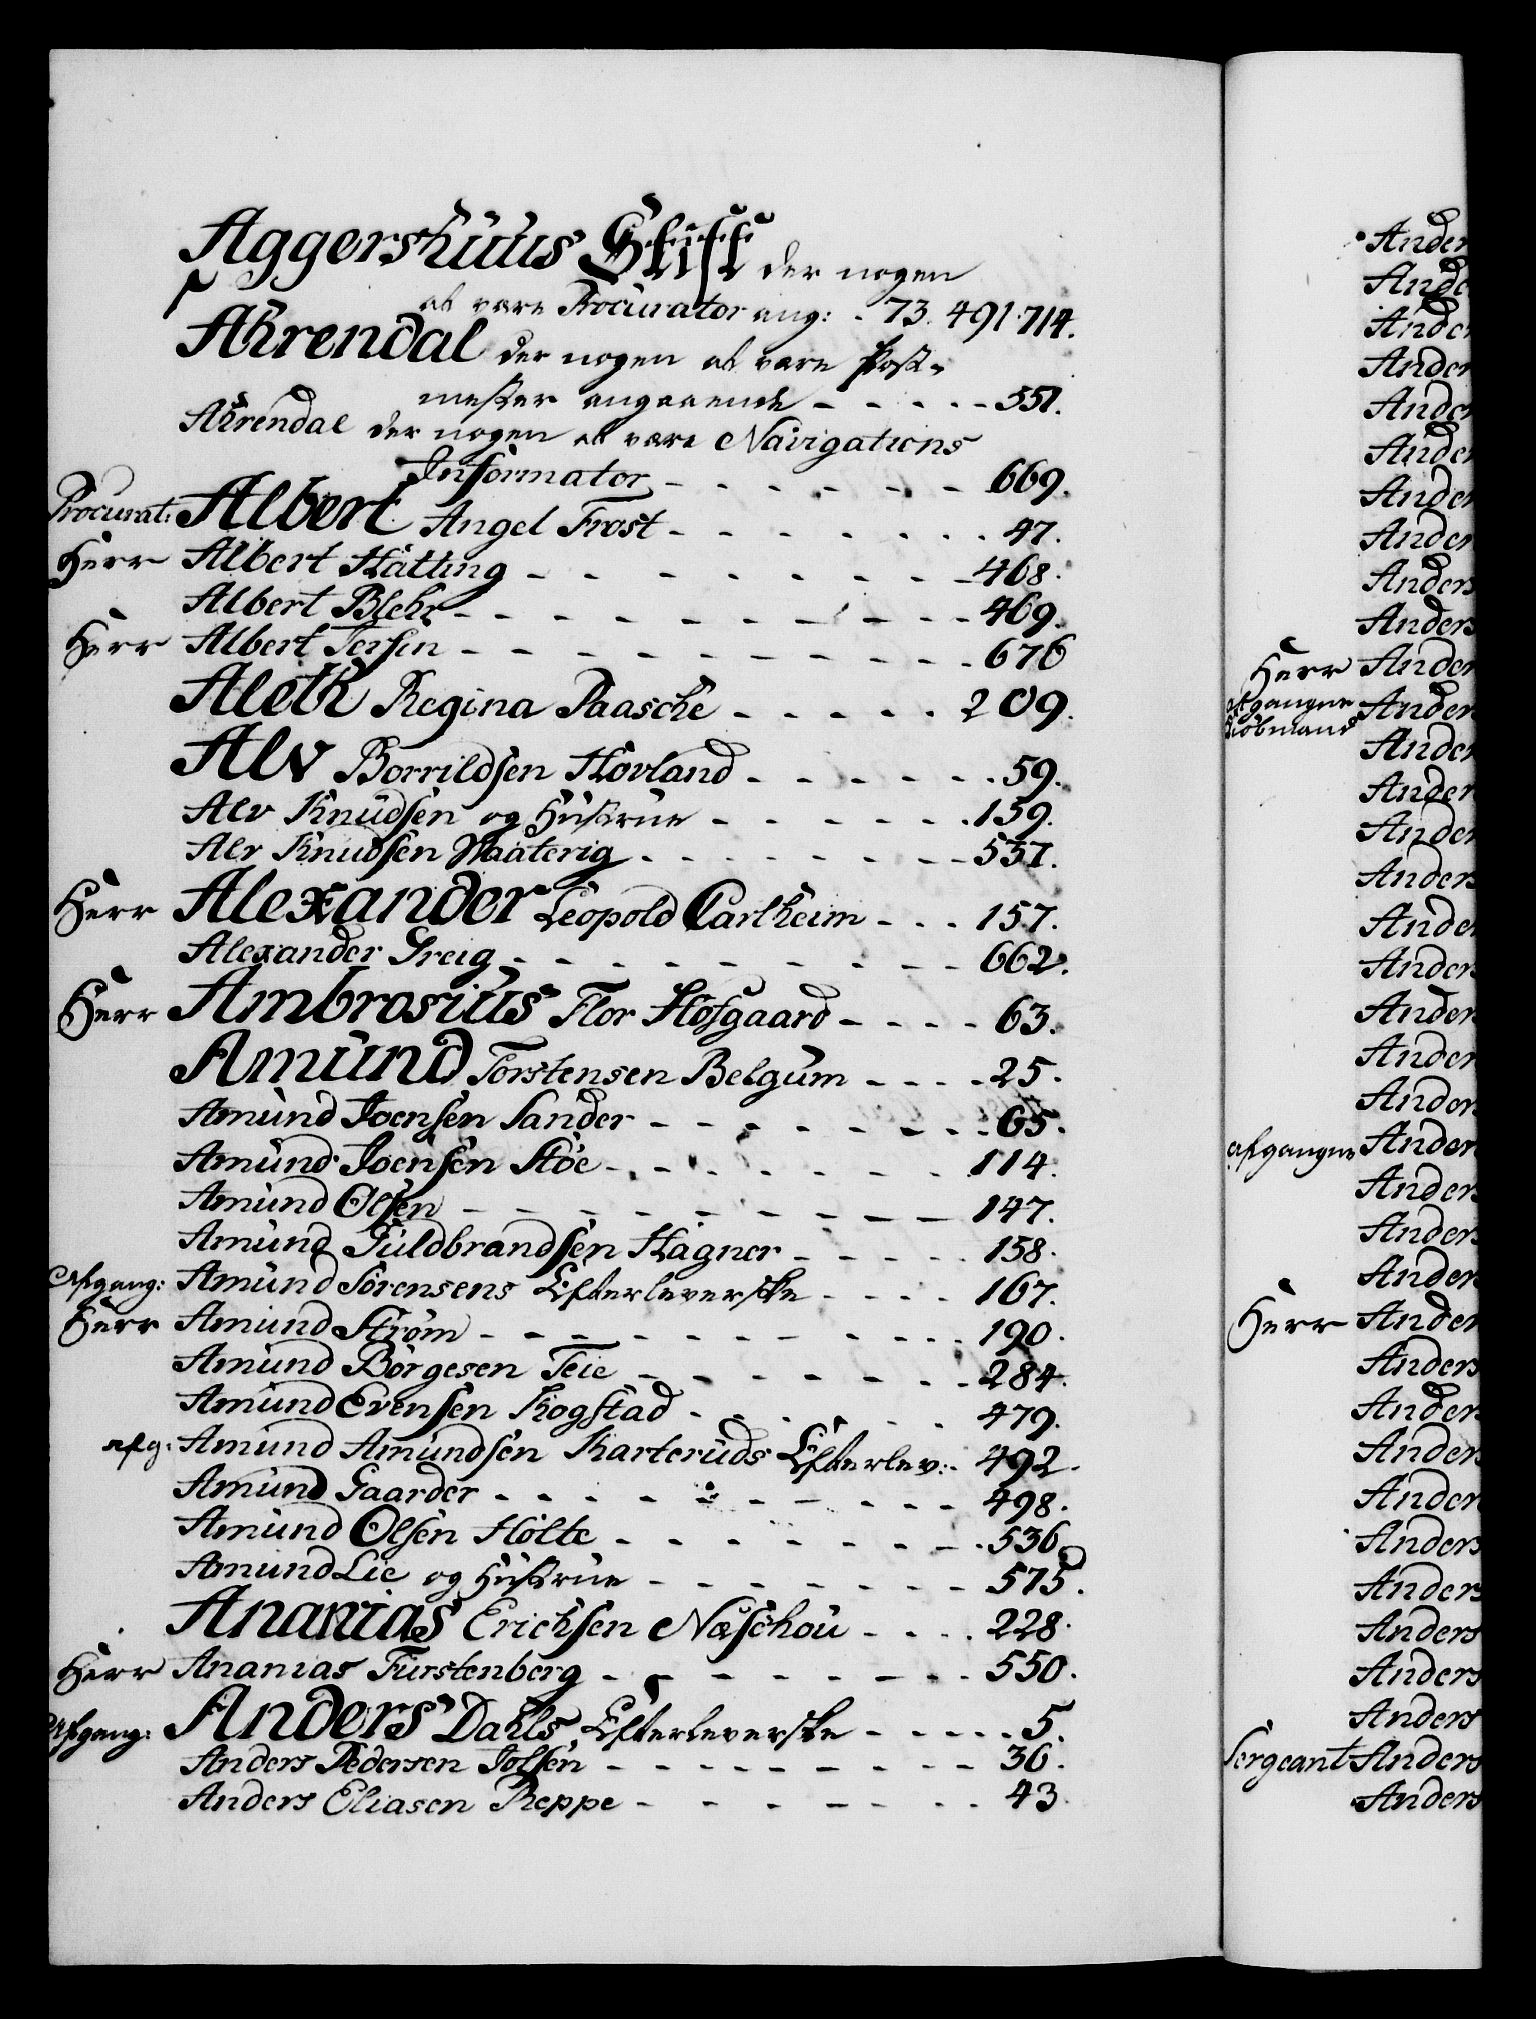 Aggershuus Stift der nogen
at være Procurator ang: - 73. 491. 714.
Ahrendal der nogen at være Post-
mester angaaende - - - - - 551.
Ahrendal der nogen at være Navigations
Informator - - - - - - 669.
Procurat: Albert Angel Frost - - - - - - - 47.
Herr Albert Hatting - - - - - - - - 468.
Albert Blehr - - - - - - - - - 469.
Herr Albert Tersin - - - - - - - - - 676
Aleth Regina Paasche - - - - - 209.
Alv Borrildsen Hovland - - - - - - 59.
Alv Knudsen og Hustrue - - - - - - 159.
Alv Knudsen Waaterig - - - - - - - 537.
Herr Alexander Leopold Carlheim - - - 157.
Alexander Greig - - - - - - - - - 662.
Herr Ambrosius Flor Hofgaard - - - - 63.
Amund Torstensen Belgum - - - - 25.
Amund Joensen Sander - - - - - - - - 65.
Amund Joensen Stöe - - - - - - - - 114.
Amund Olsen - - - - - - - - - - 147.
Amund Guldbrandsen Hagner - - - - - 158.
Afgang: Amund Sörensens Efterleverske - - - - 167.
Herr Amund Ström - - - - - - - - - 190.
Amund Börgesen Teie - - - - - - - 284.
Amund Evensen Kogstad - - - - - - 479.
afg: Amund Amundsen Karteruds Efterlev: - 492.
Amund Gaarder - - - - - - - - - 498.
Amund Olsen Holte - - - - - - - - 536
Amund Lie og Hustrue - - - - - - - 575.
Ananias Erichsen Næschou - - - - 228.
Herr Ananias Furstenberg - - - - - - - 550.
Afgang: Anders Dahls Efterleverske - - - - - 5.
Anders Pedersen Jolsen - - - - - - - - 36.
Anders Eliasen Reppe - - - - - - - 43.
Ander
Ande
Ander
Ander
Ander
Ander
Ander
Ander
Anders
Anders
Herr Ander
afgangne Kiöbmand Ander
Ander
Ander
Ander
Anders
Ander
Ander
Ander
Ander
Ander
afgangne Ander
Anders
Anders
Ander
Herr Ander
Anders
Anders
Anders
Ander
Anders
Anders
Anders
Anders
Anders
Sergeant Anders
Anders